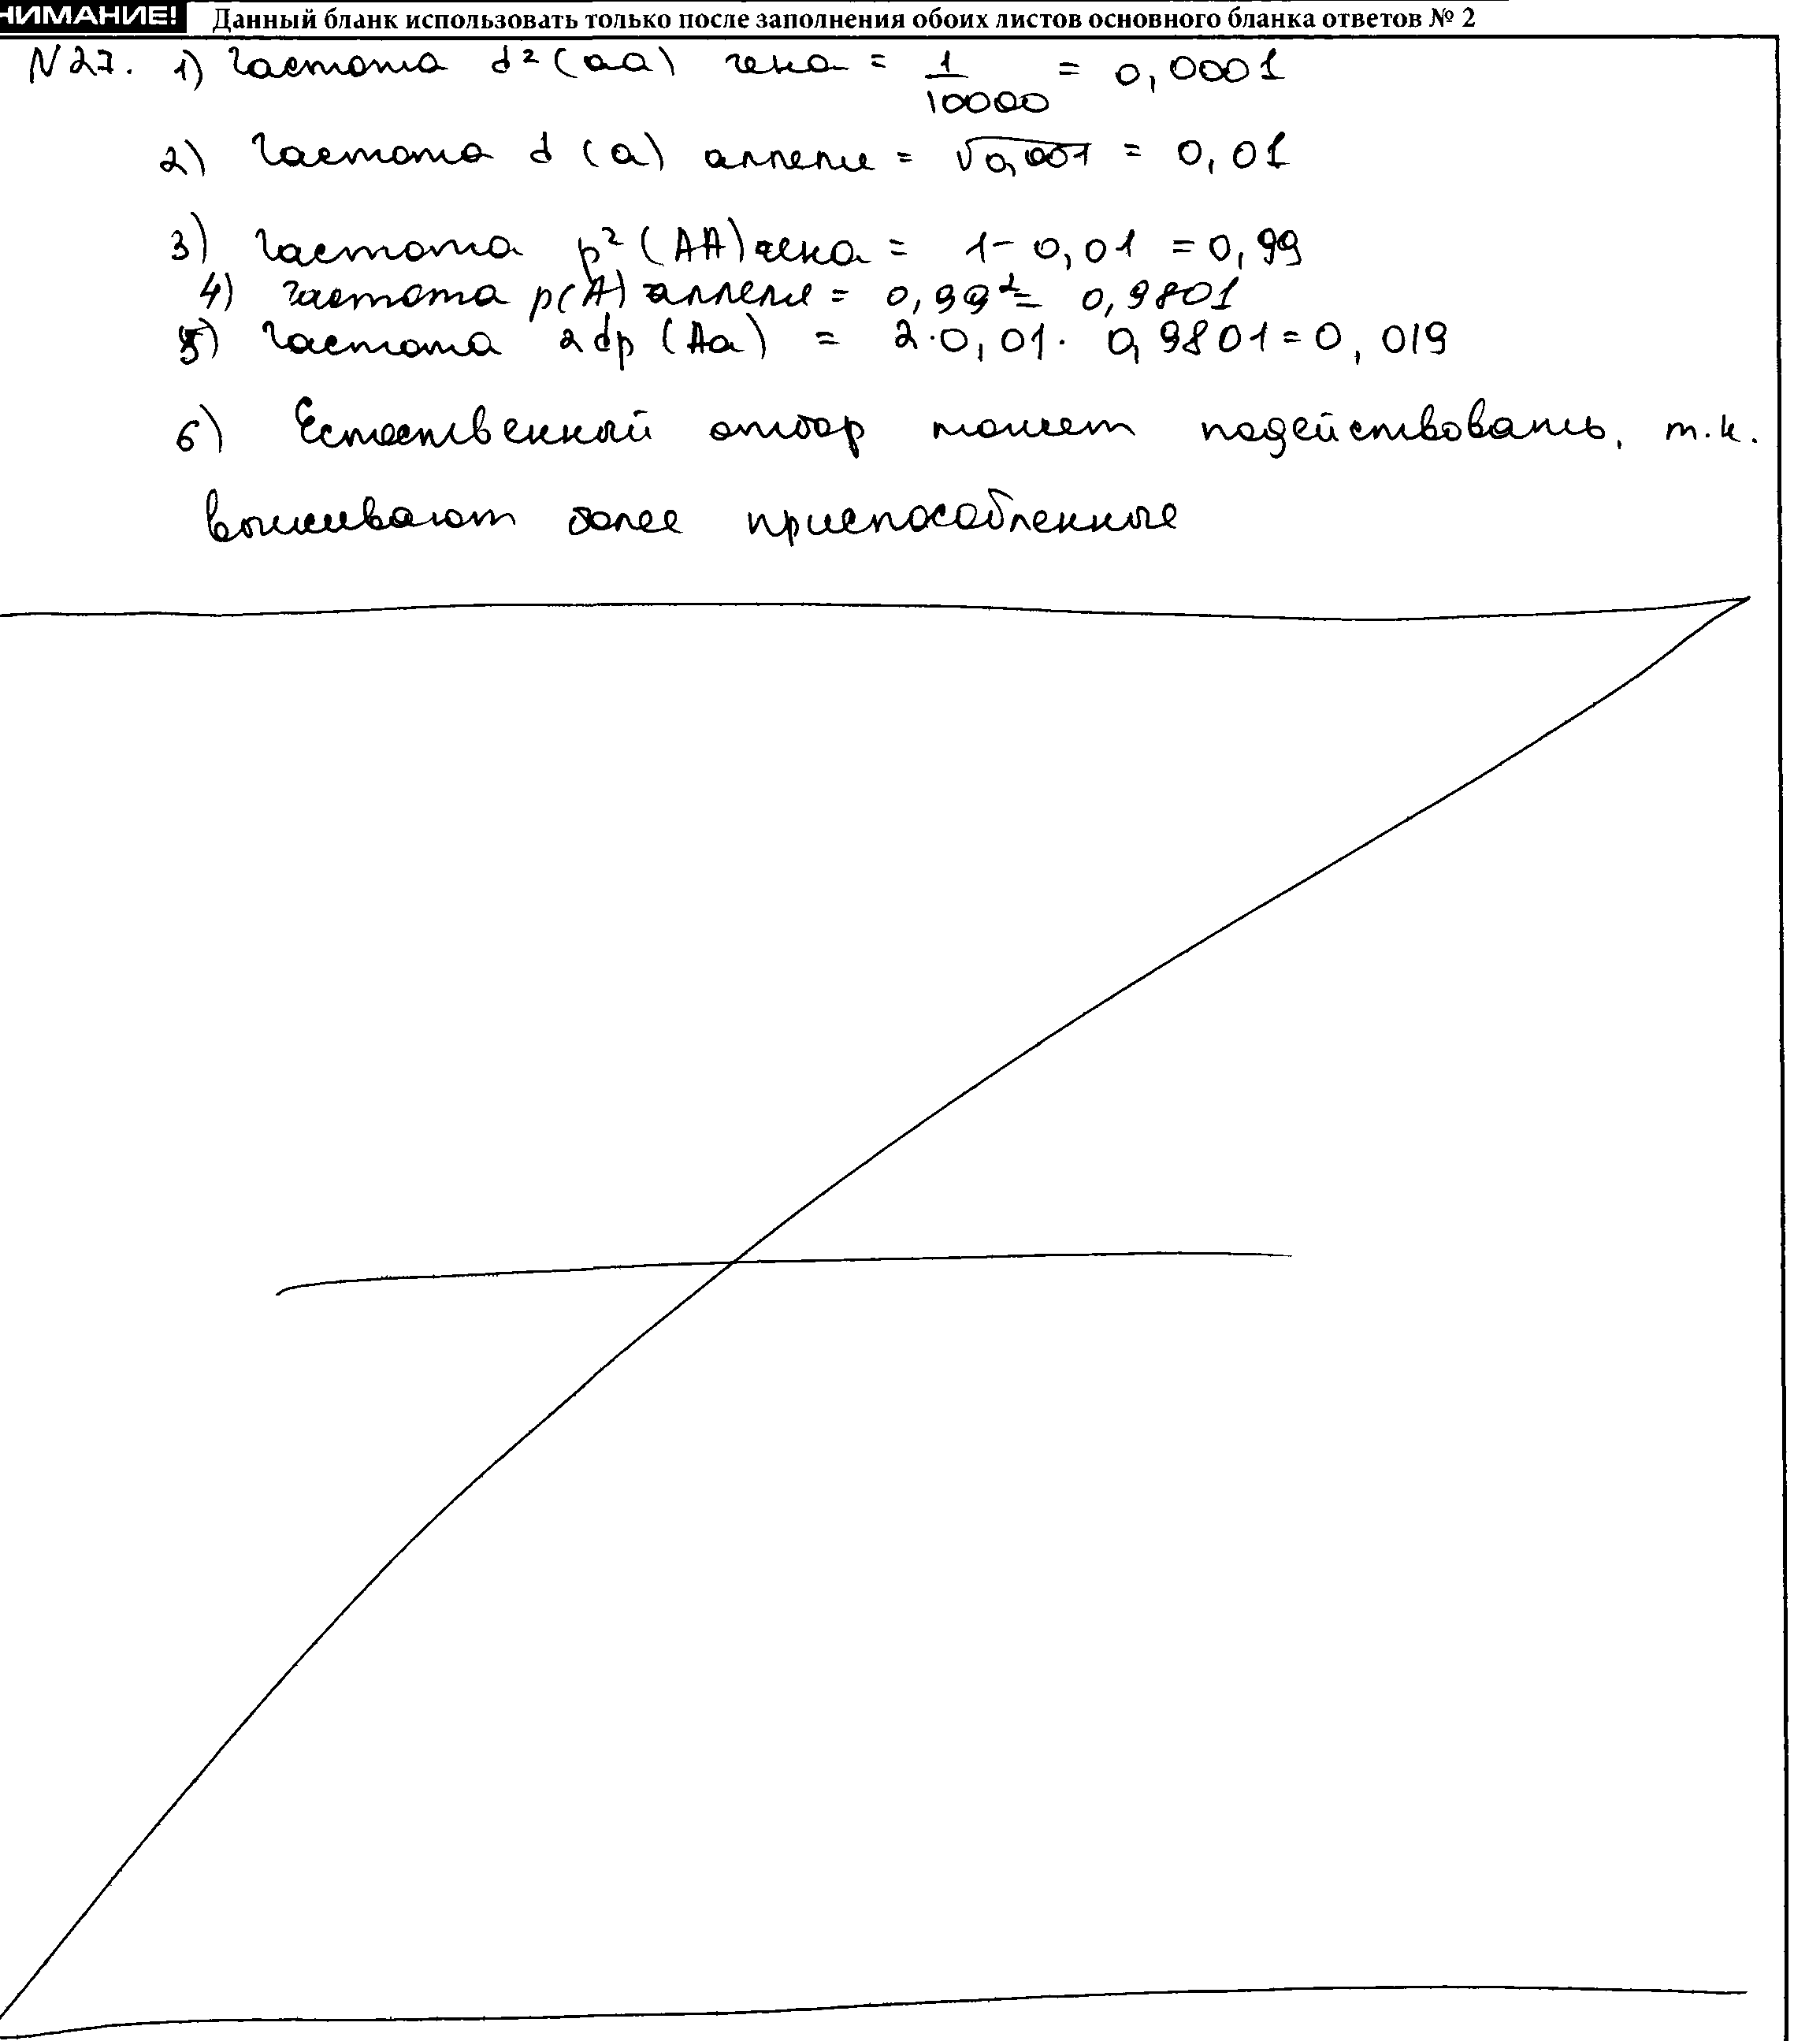 НИМАНИЕ! Данный бланк использовать только после заполнения обоих листов основного бланка ответов № 2
N27. 1) Частота d²(aa) гена = 1/10000 = 0,0001
2) Частота d (a) аллели = √0,001 = 0,01
3) Частота p² (AA) гена = 1 - 0,01 = 0,99
4) Частота p(A) аллели = 0,99² = 0,9801
5) Частота 2dp (Aa) = 2·0,01· 0,9801 = 0,019
6) Естественный отбор может подействовать, т.к.
выживают более приспособленные